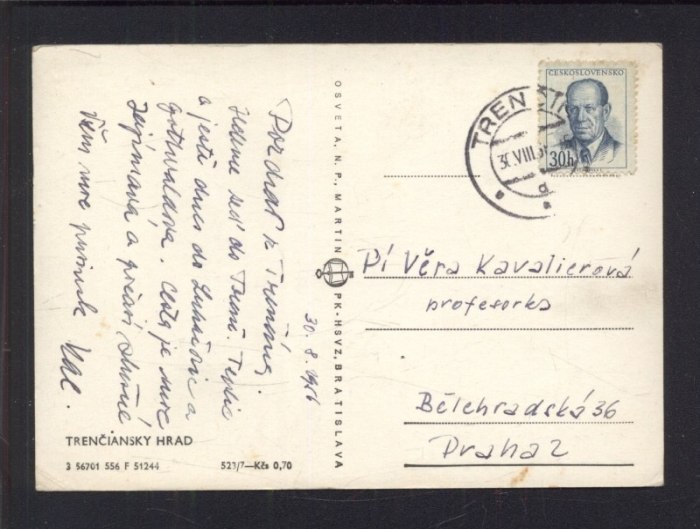 Pozdrav z Trenčína.
Jedeme teď do Trenč. Teplic
a ještě dnes do Luhačovic a
Gottwaldova. Cesta je moc
zajímavá a počasí
Všem moc
30. 8. 1956
TRENČIANSKY HRAD
3 56701 556 F 51244
523/7—Kčs 0,70
OSVETA, N. P., MARTIN
PK-HSVZ, BRATISLAVA
TREN
30.VIII.
a
ČESKOSLOVENSKO
30h
Pí Věra Kavalierová
profesorka
Bělehradská 36
Praha 2